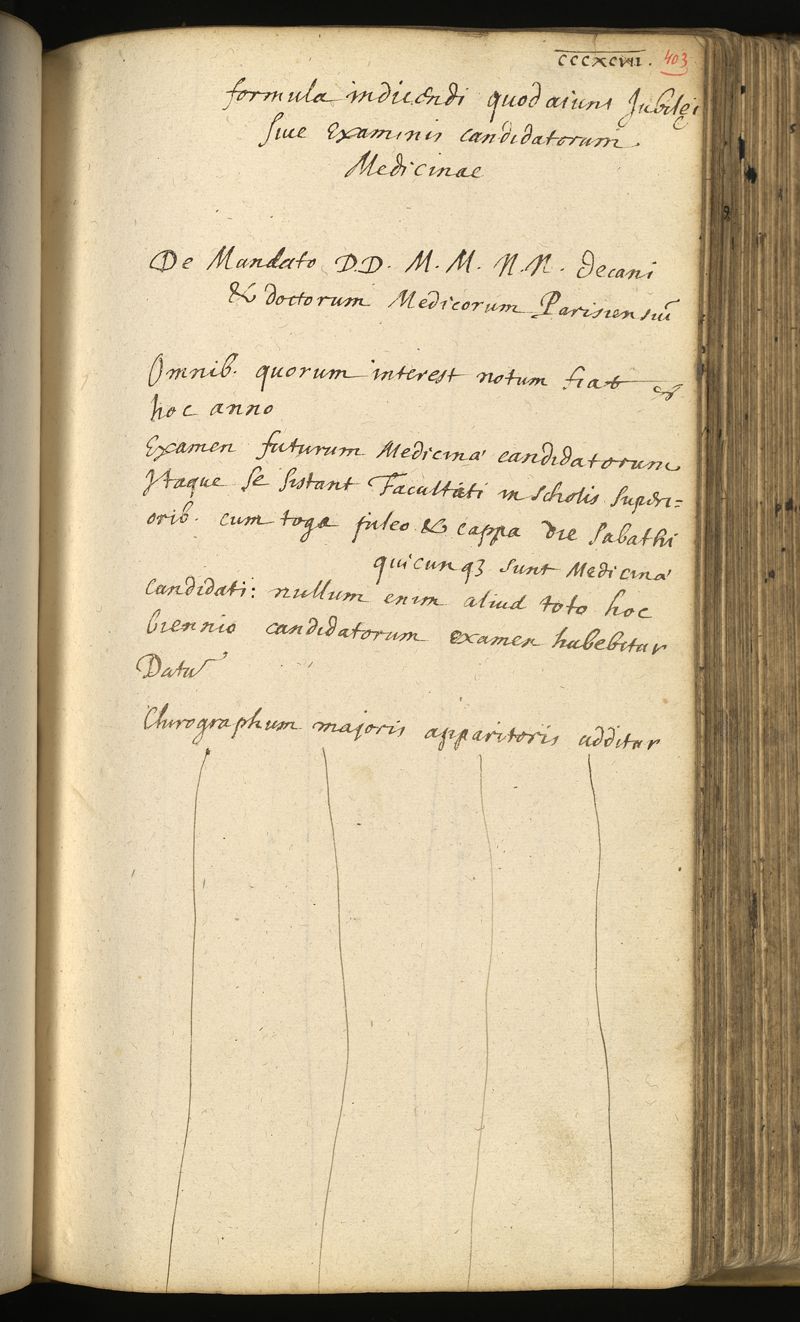 CCCXCVII. 403
formula indicendi quod aiunt Jubilęi
siue Examinis candidatorum
Medicinae
De Mandato D.D. M. M. N. N. decani
& doctorum Medicorum Parisiensiū
Omnib. quorum interest notum fiat
hoc anno
Examen futurum Medicinæ candidatorum
Itaque se sistant Facultati in scholis superi=
orib. cum toga pileo & cappa die sabathi
quicunqꝫ sunt Medicinæ
candidati: nullum enim aliud toto hoc
biennio candidatorum examen habebitur
Datū
Chirographum majoris apparitoris additur